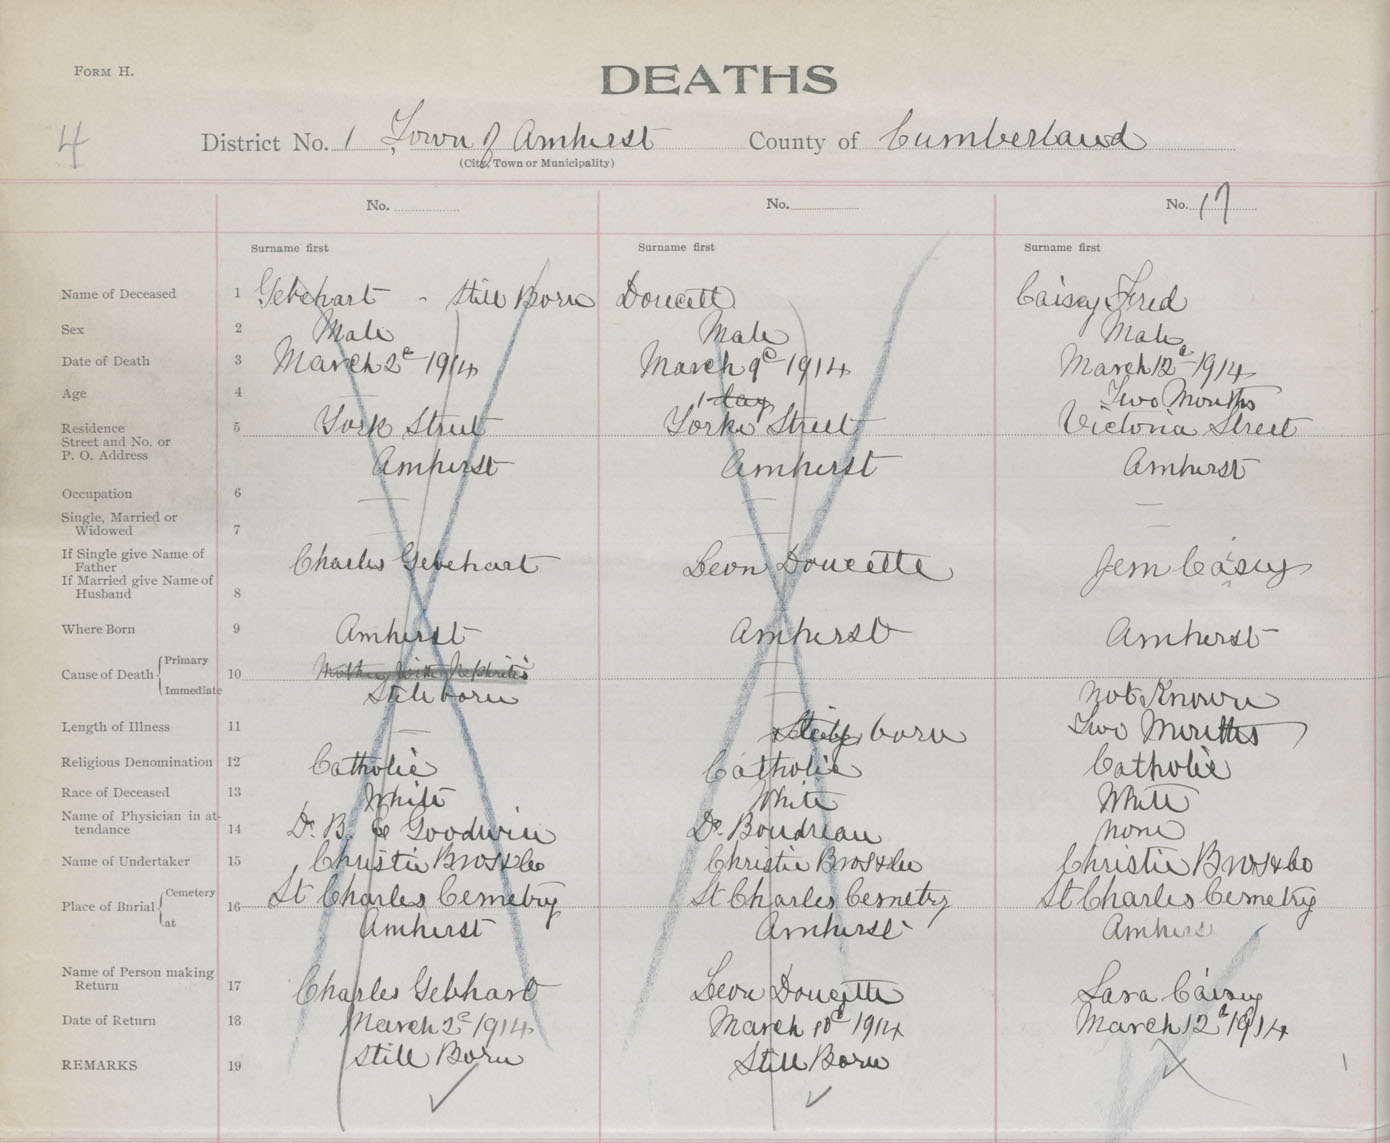 FORM H.
DEATHS
4
District No. 1 Town of Amherst County of Cumberland
(City, Town or Municipality)
No. No. No. 17
Surname first Surname first Surname first
Name of Deceased 1 Gebehart - Still Born Doucett Caisey Fred
Sex 2 Male Male Male
Date of Death 3 March 2d 1914 March 9d 1914 March 12d 1914
Age 4 — 1 day Two Months
Residence 5 York Street York Street Victoria Street
Street and No. or
P. O. Address Amherst Amherst Amherst
Occupation 6 — — —
Single, Married or
Widowed 7 — — —
If Single give Name of
Father Charles Gebehart Leon Doucette Jem Caisey
If Married give Name of
Husband 8
Where Born 9 Amherst Amherst Amherst
Cause of Death Primary 10 Nephritis —
Immediate Still born — not Known
Length of Illness 11 — born Two Months
Religious Denomination 12 Catholic Catholic Catholic
Race of Deceased 13 White White White
Name of Physician in at-
tendance 14 Dr. B. Goodwin Dr. Boudreau none
Name of Undertaker 15 Christie Bros & Co Christie Bros & Co Christie Bros & Co
Place of Burial Cemetery 16 St Charles Cemetry St Charles Cemetry St Charles Cemetry
at Amherst Amherst Amherst
Name of Person making
Return 17 Charles Gebhart Leon Doucette Sara Caisey
Date of Return 18 March 2d 1914 March 10d 1914 March 12d 1914
REMARKS 19 Still Born Still Born